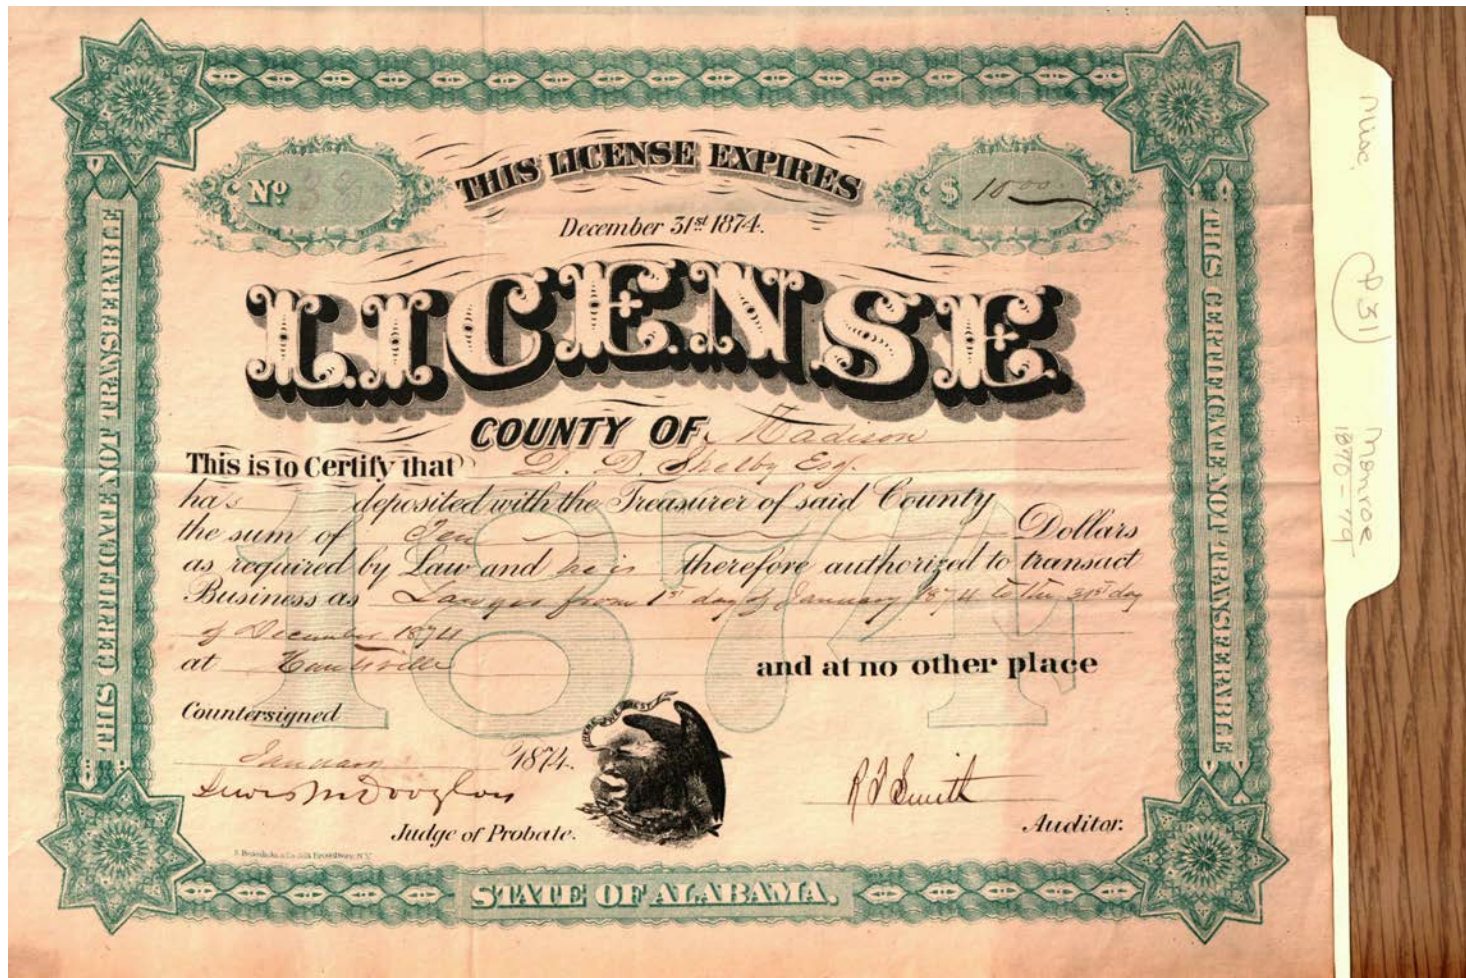 THIS LICENSE EXPIRES
Nº 38
$ 10.00
December 31st 1874.
LICENSE
COUNTY OF Madison
This is to Certify that D. D. Shelby Esq.
has deposited with the Treasurer of said County
the sum of Ten Dollars
as required by Law and he is therefore authorized to transact
Business as Lawyer from 1st day of January 1874 to the 31st day
of December 1874
at Huntsville and at no other place
1874
Countersigned
January 1874.
Lewis M Douglass
Judge of Probate.
HERE WE REST
R T Smith
Auditor.
STATE OF ALABAMA.
THIS CERTIFICATE NOT TRANSFERABLE
THIS CERTIFICATE NOT TRANSFERABLE
Misc.
P31
Monroe
1870-79